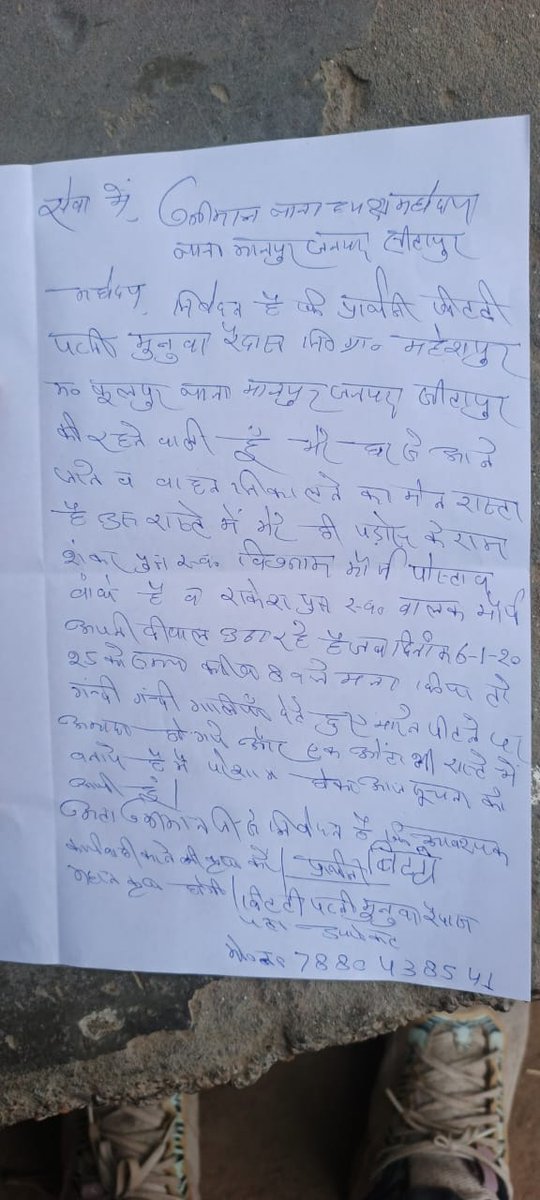 सेवा में, श्रीमान थाना अध्यक्ष महोदय
थाना मानपुर जनपद सीतापुर
महोदय, निवेदन है कि प्रार्थिनी बिटटी
पत्नी मुनुवा रैदास नि० ग्रा० महेशपुर
म० फूलपुर थाना मानपुर जनपद सीतापुर
की रहने वाली हूँ मेरे घर से आने
जाने व वाहन निकालने का मेन रास्ता
है उस रास्ते में मेरे ही पड़ोस के राम
शंकर पुत्र स्व० विश्राम मौर्य
बांधे है व राकेश पुत्र स्व० बालक मौर्य
अपनी दीवाल उठा रहे है जब दिनांक 6-1-20
25 को समय करीब 8 बजे मना किया तो
गन्दी गंदी गालियाँ देते हुए मारने पीटने पर
अमादा हो गये और एक कोठा भी रास्ते में
बनाये है मैं परेशान होकर आप सूचना को
आयी हूं।
अतः श्रीमान जी से निवेदन है कि आवश्यक
कार्यवाही करने की कृपा करें। प्रार्थिनी बिटटी
महान कृपा होगी। बिटटी पत्नी मुनुवा रैदास
पता उपरोक्त
मो०न० 7880438541